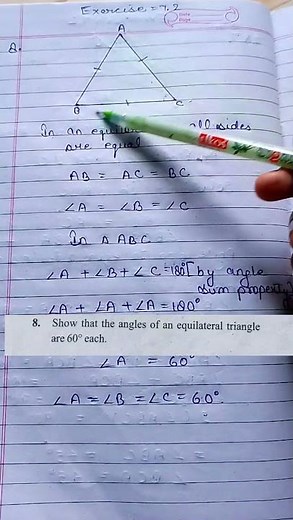 Exercise = 7.2
8.
A
B
C
In an all sides
are equal
AB = AC = BC
∠A = ∠B = ∠C
In Δ ABC
∠A + ∠B + ∠C = 180° [by angle
sum property]
∠A + ∠A + ∠A = 180°
8. Show that the angles of an equilateral triangle
are 60° each.
∠A = 60°
∠A = ∠B = ∠C = 60°